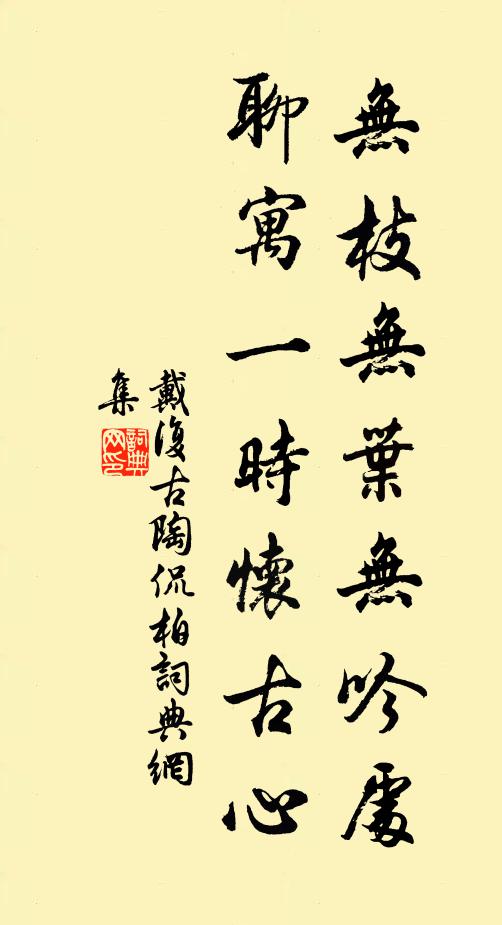 無枝無葉無吟處
聊寓一時懷古心
戴復古陶侃柏詞典網
集
詞典
网印